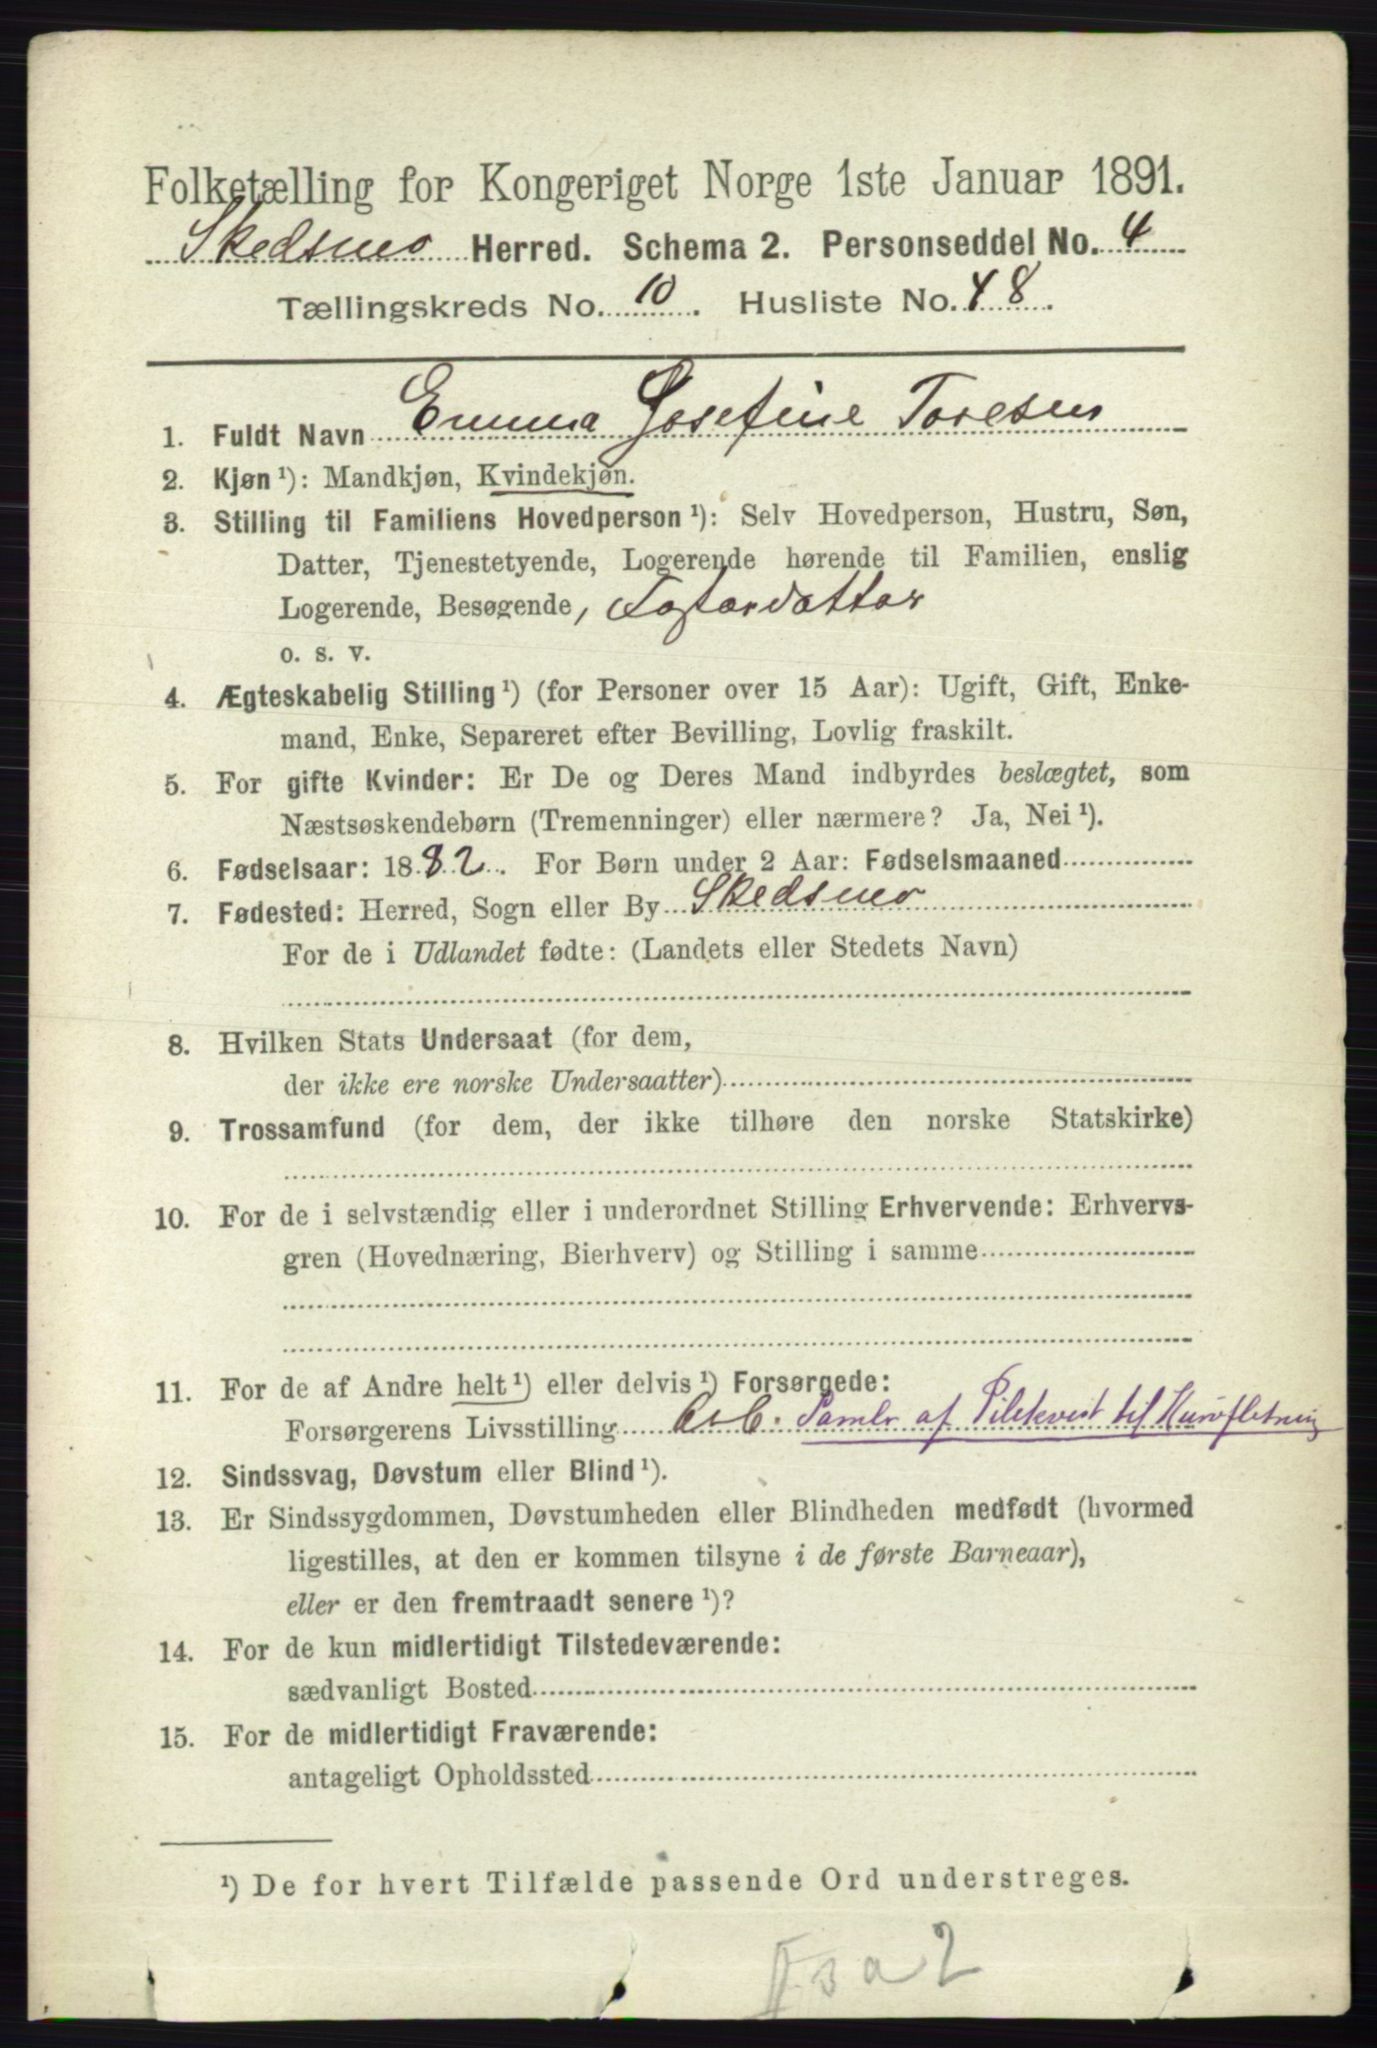 Folketælling for Kongeriget Norge 1ste Januar 1891.
Skedsmo Herred. Schema 2. Personseddel No. 4
Tællingskreds No. 10. Husliste No. 48.
1. Fuldt Navn Emma Josefine Toresen
2. Kjøn¹): Mandkjøn, Kvindekjøn.
3. Stilling til Familiens Hovedperson¹): Selv Hovedperson, Hustru, Søn,
Datter, Tjenestetyende, Logerende hørende til Familien, enslig
Logerende, Besøgende, Fosterdatter
o. s. v.
4. Ægteskabelig Stilling¹) (for Personer over 15 Aar): Ugift, Gift, Enke-
mand, Enke, Separeret efter Bevilling, Lovlig fraskilt.
5. For gifte Kvinder: Er De og Deres Mand indbyrdes beslægtet, som
Næstsøskendebørn (Tremenninger) eller nærmere? Ja, Nei¹).
6. Fødselsaar: 1882. For Børn under 2 Aar: Fødselsmaaned
7. Fødested: Herred, Sogn eller By Skedsmo
For de i Udlandet fødte: (Landets eller Stedets Navn)
8. Hvilken Stats Undersaat (for dem,
der ikke ere norske Undersaatter)
9. Trossamfund (for dem, der ikke tilhøre den norske Statskirke)
10. For de i selvstændig eller i underordnet Stilling Erhvervende: Erhvervs-
gren (Hovednæring, Bierhverv) og Stilling i samme
11. For de af Andre helt¹) eller delvis¹) Forsørgede:
Forsørgerens Livsstilling Arb. Samlr af Pilekvist til Kurvfletning
12. Sindssvag, Døvstum eller Blind¹).
13. Er Sindssygdommen, Døvstumheden eller Blindheden medfødt (hvormed
ligestilles, at den er kommen tilsyne i de første Barneaar),
eller er den fremtraadt senere¹)?
14. For de kun midlertidigt Tilstedeværende:
sædvanligt Bosted
15. For de midlertidigt Fraværende:
antageligt Opholdssted
¹) De for hvert Tilfælde passende Ord understreges.